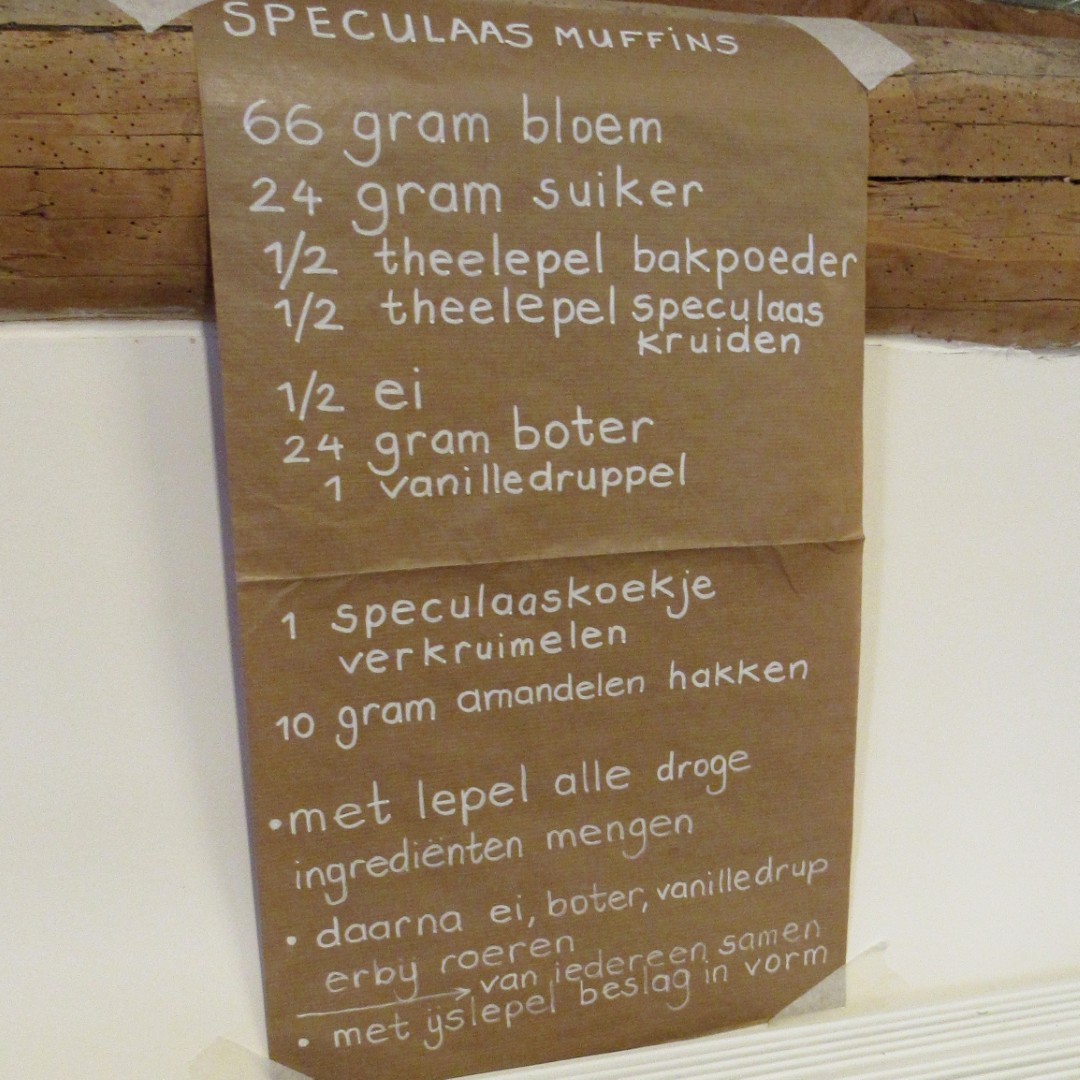 SPECULAAS MUFFINS
66 gram bloem
24 gram suiker
1/2 theelepel bakpoeder
1/2 theelepel speculaas
kruiden
1/2 ei
24 gram boter
1 vanilledruppel
1 speculaaskoekje
verkruimelen
10 gram amandelen hakken
• met lepel alle droge
ingrediënten mengen
• daarna ei, boter, vanilledrup
erbij roeren
→ van iedereen samen
• met ijslepel beslag in vorm